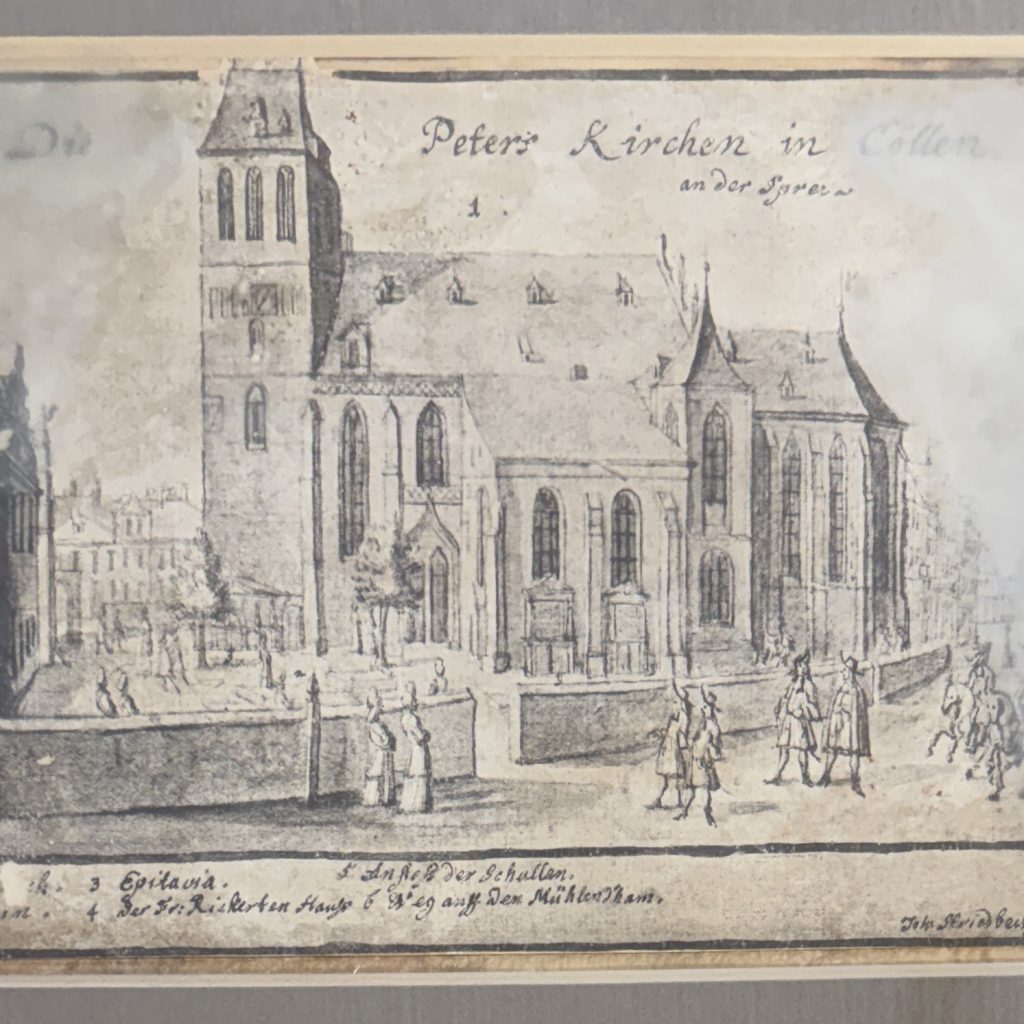 Die Peters Kirchen in Cöllen.
an der Spree
1.
3 Epitavia. 5 An stoß der Schullen.
4 Der Fr: Rickerten Hauß 6 Weg auff den Mühlendham.
Joh: Stridbeck